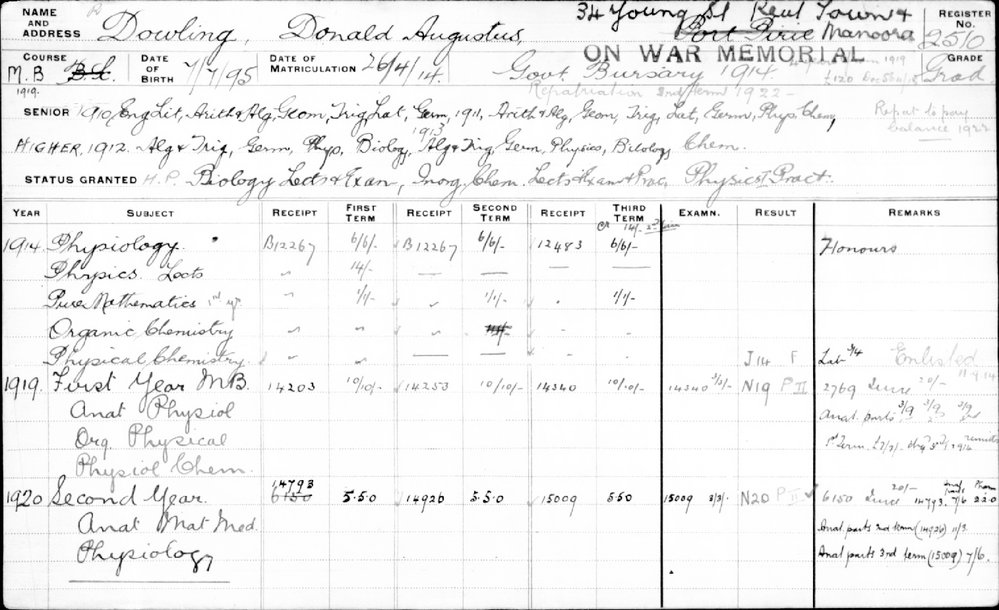 NAME AND ADDRESS Dowling, Donald Augustus, 34 Young St Kent Town & Port Pirie Manoora REGISTER No. 2510
ON WAR MEMORIAL
COURSE M.B B.Sc. DATE OF BIRTH 7/7/95 DATE OF MATRICULATION 26/4/14 Govt. Bursary 1914 1919 £120 GRADE Grad
1919. Repatriation 2nd term 1922
SENIOR 1910, Eng Lit, Arith & Alg, Geom, Trig, Lat, Germ, 1911, Arith & Alg, Geom, Trig, Lat, Germ, Phys, Chem, Repat to pay balance 1922
HIGHER, 1912. Alg & Trig, Germ, Phys, Biology, 1913 Alg & Trig, Germ, Physics, Biology Chem.
STATUS GRANTED H.P. Biology Lects & Exan, Inorg. Chem. Lects & Exam & Prac. Physics I Pract.
YEAR SUBJECT RECEIPT FIRST TERM RECEIPT SECOND TERM RECEIPT THIRD TERM EXAMN. RESULT REMARKS
1914 Physiology. B12267 6/6/- B12267 6/6/- 12483 6/6/- Honours
Physics Lects " 14/- — — — —
Pure Mathematics 1st yr " 1/1/- " 1/1/- 1/1/-
Organic Chemistry " " "
Physical Chemistry. " " — — J14 F Lab 3/4 Enlisted
1919. First Year M.B. 14203 10/10/- 14253 10/10/- 14340 10/10/- 14340 3/3/- N19 P II 2769 20/- 11.9.14
Anat Physiol Anat. parts 3/9 3/9 3/9
Org. Physical 1st Term
Physiol Chem.
1920 Second Year. 14793 6150 5.5.0 14926 5.5.0 15009 5.5.0 15009 3/3/- N20 P II 6150 20/- 14793. 7/6 2.2.0
Anat Mat Med. Anal. parts 2nd term (14926) 11/3
Physiology Anal parts 3rd term (15009) 7/6.